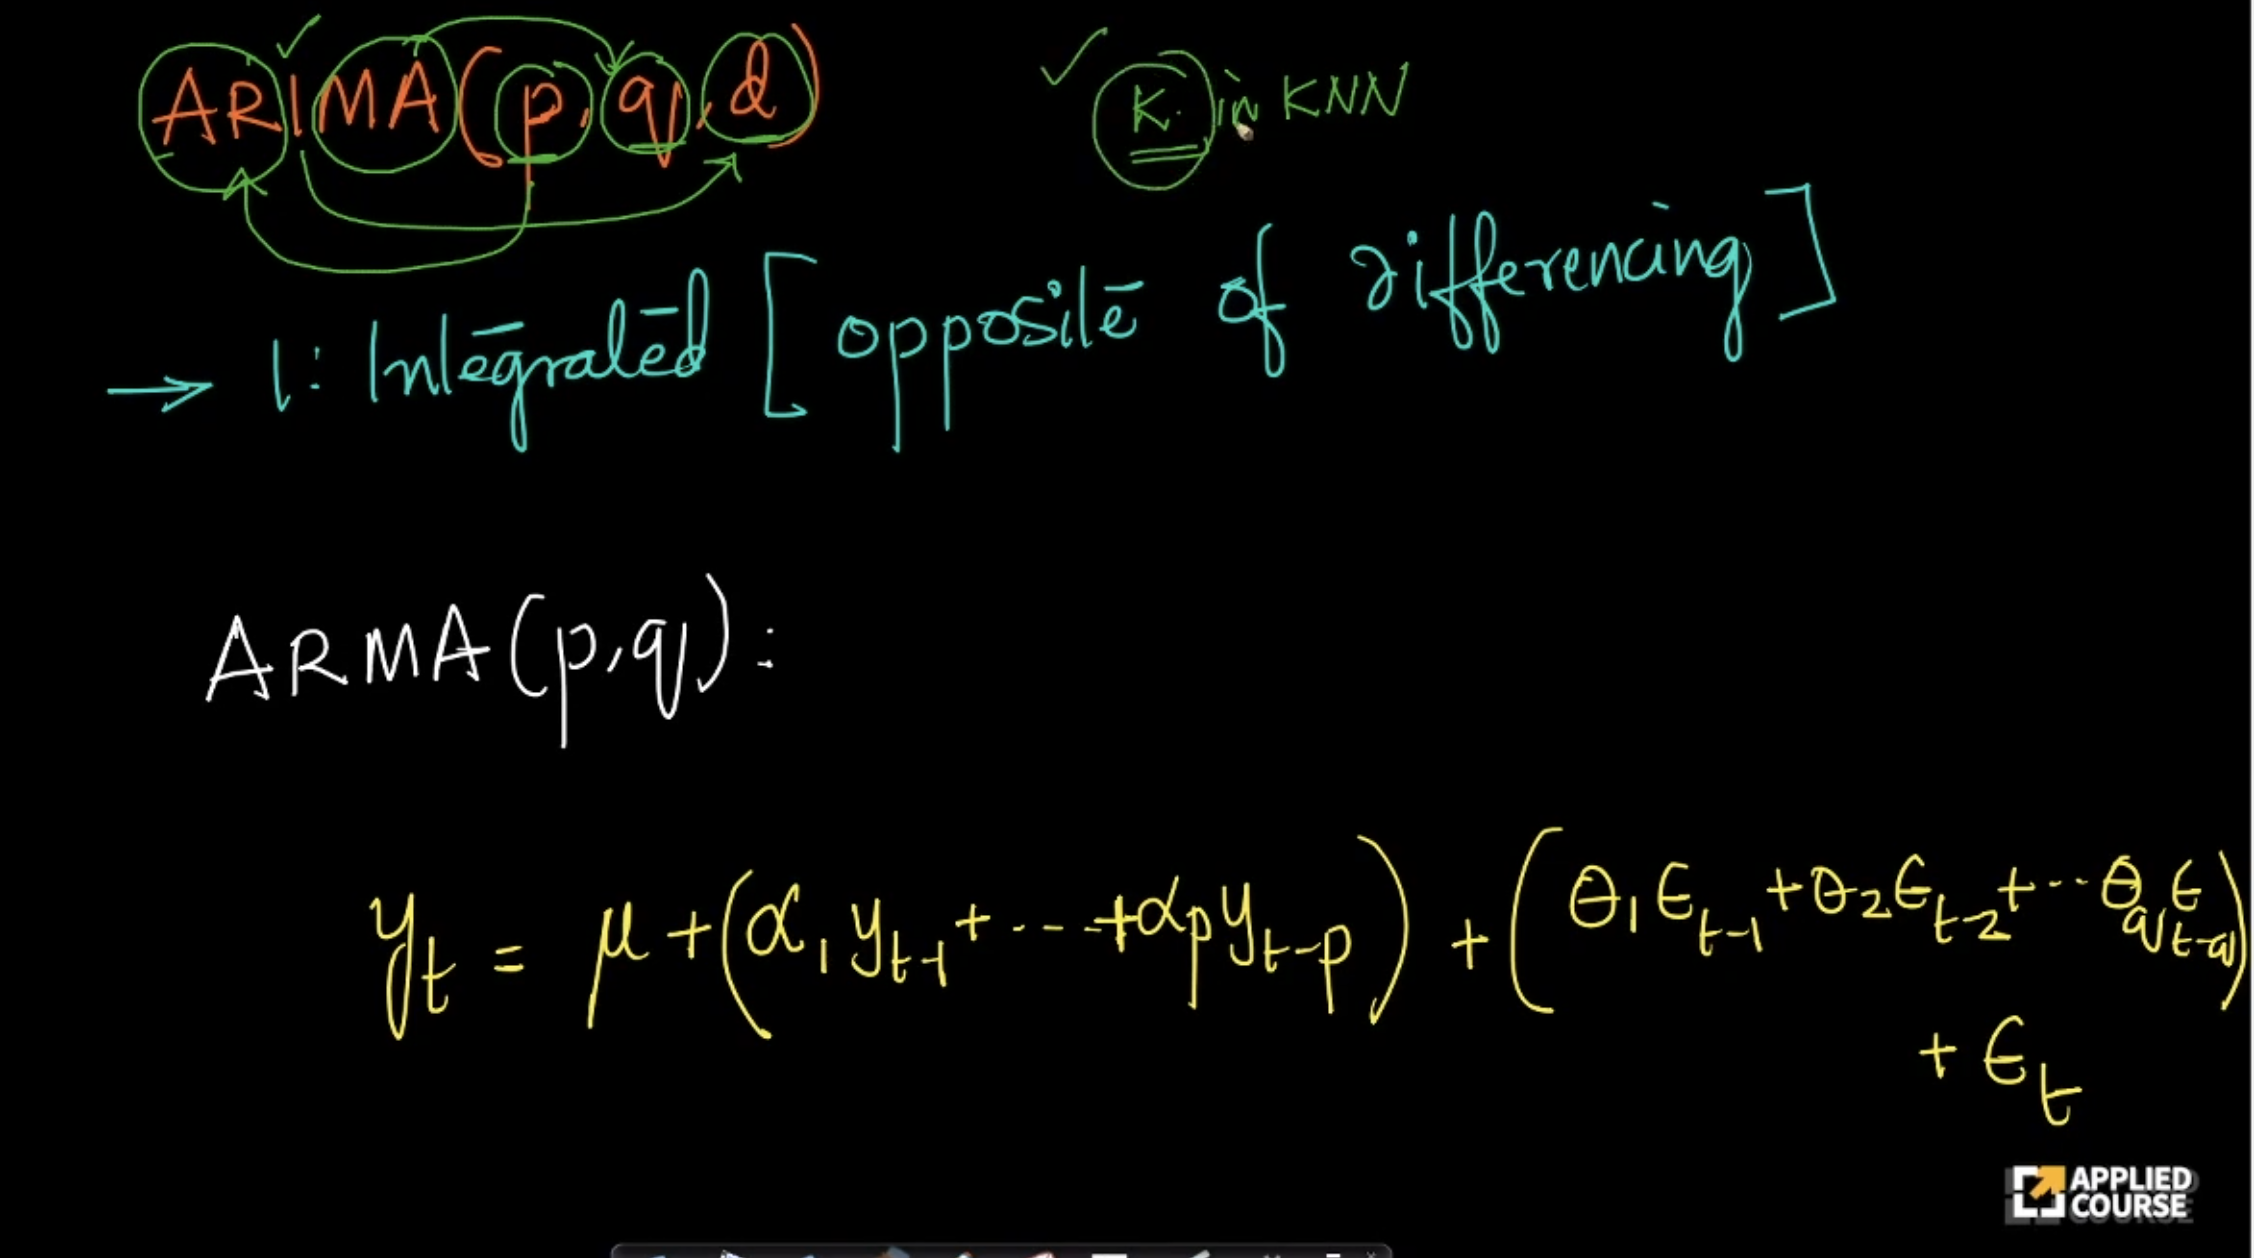 ARIMA(p,q,d)
K in KNN
→ I: Integrated [opposite of differencing]
ARMA(p,q):
y_t = μ + (α_1 y_{t-1} + --- + α_p y_{t-p}) + (θ_1 ϵ_{t-1} + θ_2 ϵ_{t-2} + ··· θ_q ϵ_{t-q})
+ ϵ_t
APPLIED
COURSE